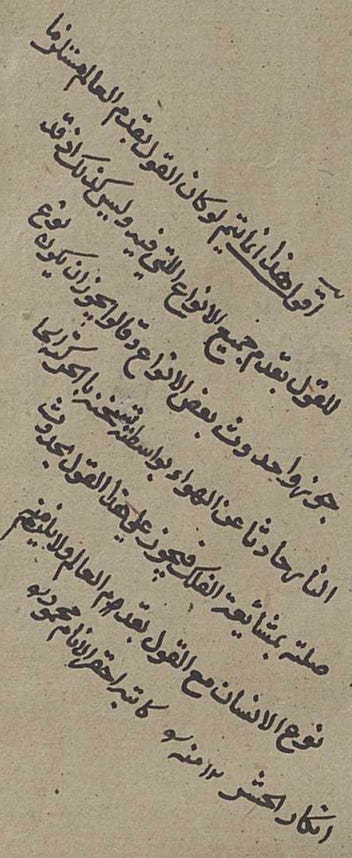 اقول هذا انما يتم لو كان القول بقدم العالم مستلزما
للقول بقدم جميع الانواع اللتي فيه وليس كذلك اذ قد
جوزوا حدوث بعض الانواع وقالوا يجوز ان يكون نوع
النار حادثا عن الهواء بواسطة تسخنه بالحركة الحا
صلة بمشايعة الفلك فيجوز على هذا القول بحدوث
نوع الانسان مع القول بقدم العالم ولا يلزم منه
انكار الحشر ١٢ منه كاتبه احقر الانام محمود